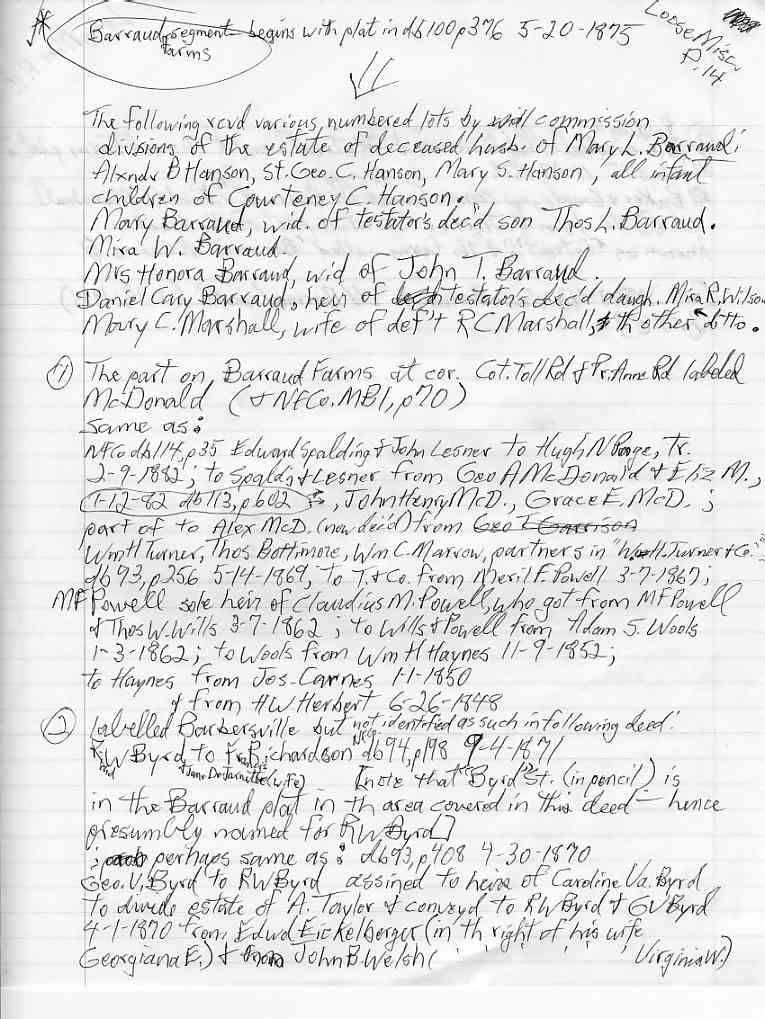 Loose Misc.
P. 14
Barraud segment begins with plat in db100p376 5-20-1875
Farms
The following rcvd various numbered lots by will commission
divisions of the estate of deceased husb. of Mary L. Barraud:
Alxndr B Hanson, St. Geo. C. Hanson, Mary S. Hanson, all infant
children of Courteney C. Hanson.
Mary Barraud, wid. of testator's dec'd son Thos L. Barraud.
Mira W. Barraud.
Mrs Honora Barraud, wid of John T. Barraud.
Daniel Cary Barraud, heir of testator's dec'd daugh. Mira R. Wilson
Mary C. Marshall, wife of def't RC Marshall, th other ditto.
(1) The part on Barraud Farms at cor. Cot. Toll Rd & Pr. Anne Rd labeled
McDonald (& NfCo. MB1, p70)
same as:
NfCo db114, p35 Edward Spalding & John Lesner to Hugh N Page, Tr.
2-9-1882; to Spaldg & Lesner from Geo A McDonald & Eliz M.,
1-12-82 db113, p602, John Henry McD., Grace E. McD.;
part of to Alex McD. (now dec'd) from Geo T Garrison
Wm H Turner, Thos Bottimore, Wm C. Marrow, partners in "Wm H. Turner & Co."
db93, p256 5-14-1869, to T. & Co. from Meril F. Powell 3-7-1867;
MF Powell sole heir of Claudius M. Powell, who got from MF Powell
& Thos W. Wills 3-7-1862; to Wills & Powell from Adam S. Wools
1-3-1862; to Wools from Wm H Haynes 11-9-1852;
to Haynes from Jos. Carnes 1-1-1850
& from HW Herbert 6-26-1848
(2) labelled Barbersville but not identified as such in following deed:
R. W Byrd to Fr. Richardson NfCo db94, p198 9-4-1871
& Jane DeJarnette (wife) [note that "Byrd" St. (in pencil) is
in the Barraud plat in th area covered in this deed — hence
presumbly named for RW. Byrd]
; perhaps same as: db93, p408 4-30-1870
Geo. V. Byrd to RW Byrd assined to heirs of Caroline Va. Byrd
to divide estate of A. Taylor & conveyd to RW Byrd & GV Byrd
4-1-1870 from Edwd Eickelberger (in th right of his wife
Georgiana E.) & from John B. Welsh ( ' ' ' ' ' Virginia W.)